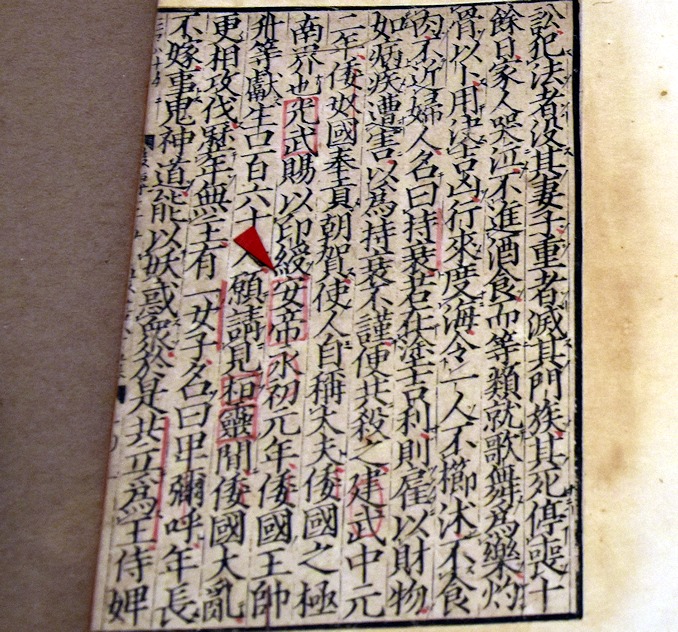 訟犯法者没其妻子重者滅其門族其死停喪十
餘日家人哭泣不進酒食而等類就歌舞為樂灼
骨以卜用决吉凶行來度海令一人不櫛沐不食
肉不近婦人名曰持衰若在塗吉利則雇以財物
如病疾遭害以為持衰不謹便共殺之建武中元
二年倭奴國奉貢朝賀使人自稱大夫倭國之極
南界也光武賜以印綬安帝永初元年倭國王帥
升等獻生口百六十人願請見桓靈間倭國大亂
更相攻伐歷年無主有一女子名曰卑彌呼年長
不嫁事鬼神道能以妖惑衆於是共立為王侍婢